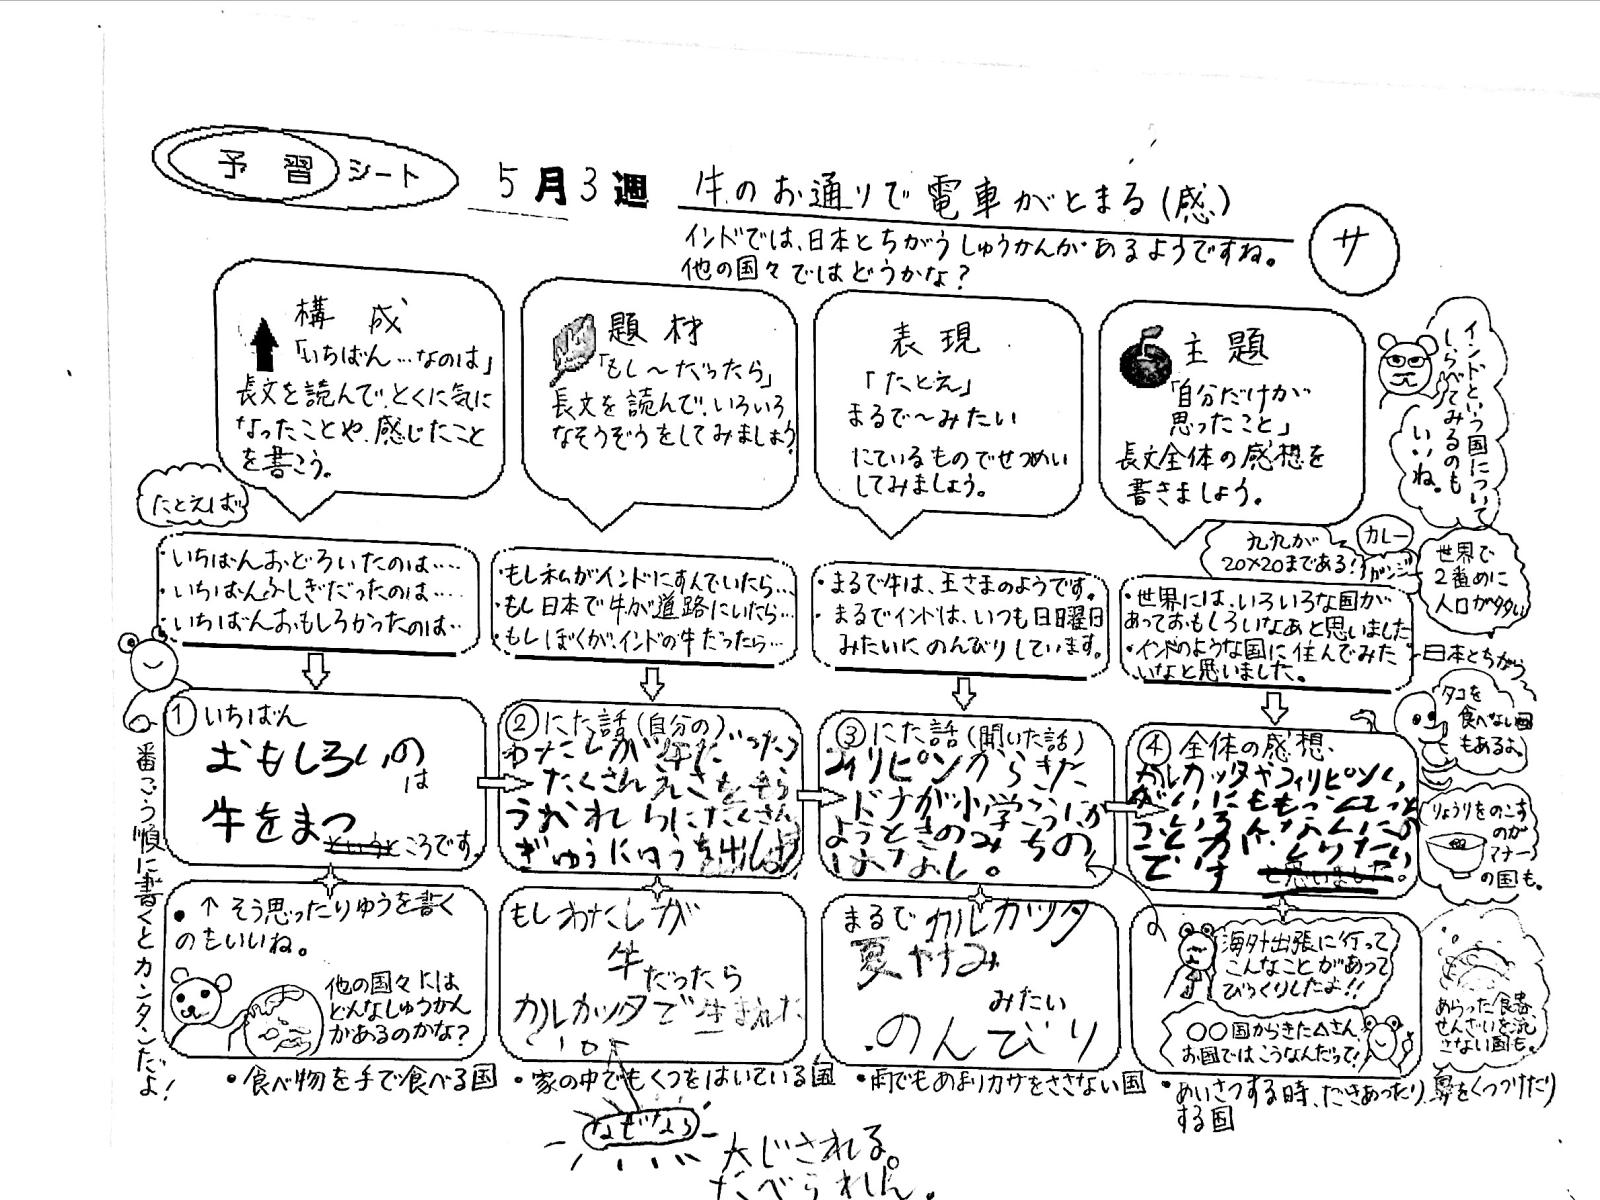 予習シート
5月3週 牛のお通りで電車がとまる(感)
サ
インドでは、日本とちがうしゅうかんがあるようですね。
他の国々ではどうかな?
構成
「いちばん…なのは」
長文を読んで、とくに気に
なったことや、感じたこと
を書こう。
題材
「もし~だったら」
長文を読んで、いろいろ
なそうぞうをしてみましょう
表現
「たとえ」
まるで~みたい
にているものでせつめい
してみましょう。
主題
「自分だけが
思ったこと」
長文全体の感想を
書きましょう。
インドという国について
しらべてみるのも
いいね。
たとえば
・いちばんおどろいたのは…‥
・いちばんふしぎだったのは…‥
・いちばんおもしろかったのは‥
・もし私がインドにすんでいたら…
・もし日本で牛が道路にいたら…
・もしぼくが、インドの牛だったら…
・まるで牛は、王さまのようです。
・まるでインドは、いつも日曜日
みたいにのんびりしています。
・世界には、いろいろな国が
あっておもしろいなあと思いました
・インドのような国に住んでみた
いなと思いました。
九九が
20×20まである!
カレー
ガンジー
世界で
2番めに
人口が多い
日本とちがう
タコを
食べない国
もあるよ。
りょうりをのこす
のが
マナー
の国も。
あらった食器、
せんざいを流
さない国も。
番ごう順に書くとカンタンだよ!
① いちばん
おもしろいの
は
牛をまつ
というところです
② にた話(自分の)
わたしが牛だったら
たくさんえさをもら
うおれいにたくさん
ぎゅうにゅうを出しま
③ にた話(聞いた話)
フィリピンからきた
ドナが小学こうにか
ようときのみちの
はなし。
④ 全体の感想
カルカッタやフィリピン
です
と思いました。
・↑そう思ったりゆうを書く
のもいいね。
他の国々には
どんなしゅうかん
があるのかな?
もしわたしが
牛だったら
カルカッタで生まれた
い
まるでカルカッタ
夏やすみ
みたい
のんびり
海外出張に行って
こんなことがあって
びっくりしたよ!!
○○国からきた△さん
お国ではこうなんだって!
・食べ物を手で食べる国
・家の中でもくつをはいている国
・雨でもあまりカサをささない国
・あいさつする時、だきあったり、鼻をくっつけたり
する国
なぜなら
大じされる。
たべられん。